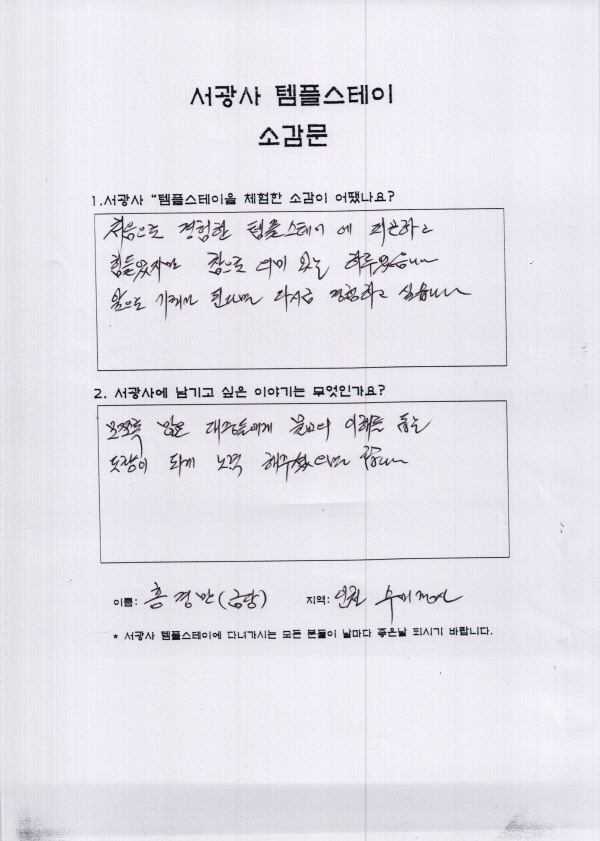 서광사 템플스테이
소감문
1.서광사 "템플스테이을 체험한 소감이 어땠나요?
처음으로 경험한 템플스테이 에 피곤하고
힘들었지만 참으로 의미 있는 하루였습니다
앞으로 기회가 된다면 다시금 경험하고 싶습니다
2. 서광사에 남기고 싶은 이야기는 무엇인가요?
많은 대중들에게 불교의 이해를 돕는
도량이 되게 노력 해주셨으면 합니다
이름: 홍경만(금당) 지역: 인천
* 서광사 템플스테이에 다녀가시는 모든 분들이 날마다 좋은날 되시기 바랍니다.